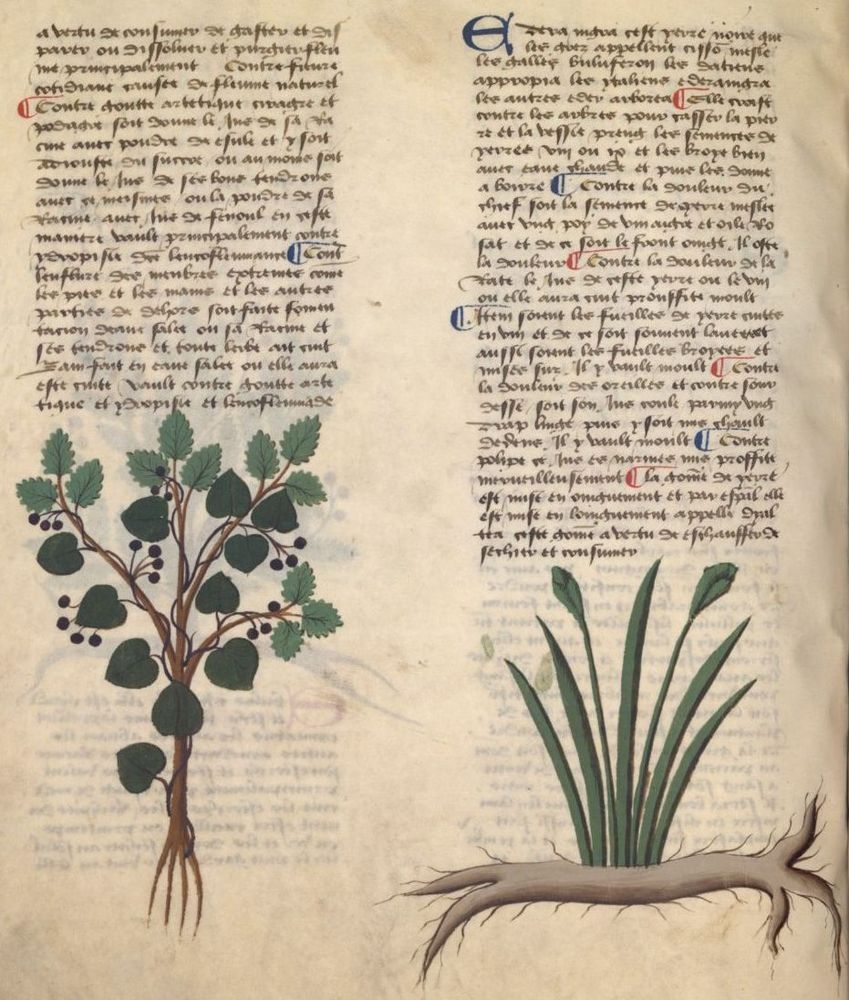 a vertu de consumer de gaster et dis
parer ou dissoluer et purgier fleu
me principalement Contre fieure
cotidiane causee de fleume naturel
Contre goutte artetique ciragre et
podagre soit donne le Jus de sa Ra
cine auec poudre de esule et y soit
adiouste du succre ou au moins soit
donne le Jus de ses bons tendrons
auec ce mesmes ou la poudre de sa
Racine auec Jus de fenoul en ceste
maniere vault principalement contre
ydropisie dce leucofleumance Cont
lenfleure des menbres extremes come
les pies et les mains et les autres
parties de dehors soit faite fomen
tacion deaue salee ou sa Racine et
ses tendrons et toute lerbe ait cuit
bain fait en eaue salee ou elle aura
este cuite vault contre goutte arte
tique et ydropisie et leucofleumade
Edera nigra cest yerre noire que
les grez appellent cisso mesle
les galles buluseron les daciens
appropia les ytaliens ederanigra
les autres edez arborea Elle croist
contre les arbres pour casser la pier
re et la vessie preng les semences de
yerres viii ou ix et les broye bien
auec eaue chaude et puis les donne
a boire Contre la douleur du
chief soit la semence de yerre meslee
auec vng poy de vin aigre et oile Ro
sat et de ce soit le front oingt Il oste
la douleur Contre la douleur de la
Rate le Jus de ceste yerre ou le vin
ou elle aura cuit prouffite moult
Item soient les fueilles de yerre cuites
en vin et de ce soit souuent laue
aussi soient les fueilles broyees et
mises sur Il y vault moult Contre
la douleur des oreilles et contre sour
desse soit son Jus coule parmy vng
drap linge puis y soit mis chault
dedens Il y vault moult Contre
polipe ce Jus es narines mis proffite
merueilleusement la gome de yerre
est mise en oinguement et par espal elle
est mise en loinguement appelle dyal
tea ceste gome a vertu de eschauffer de
sechier et consumer